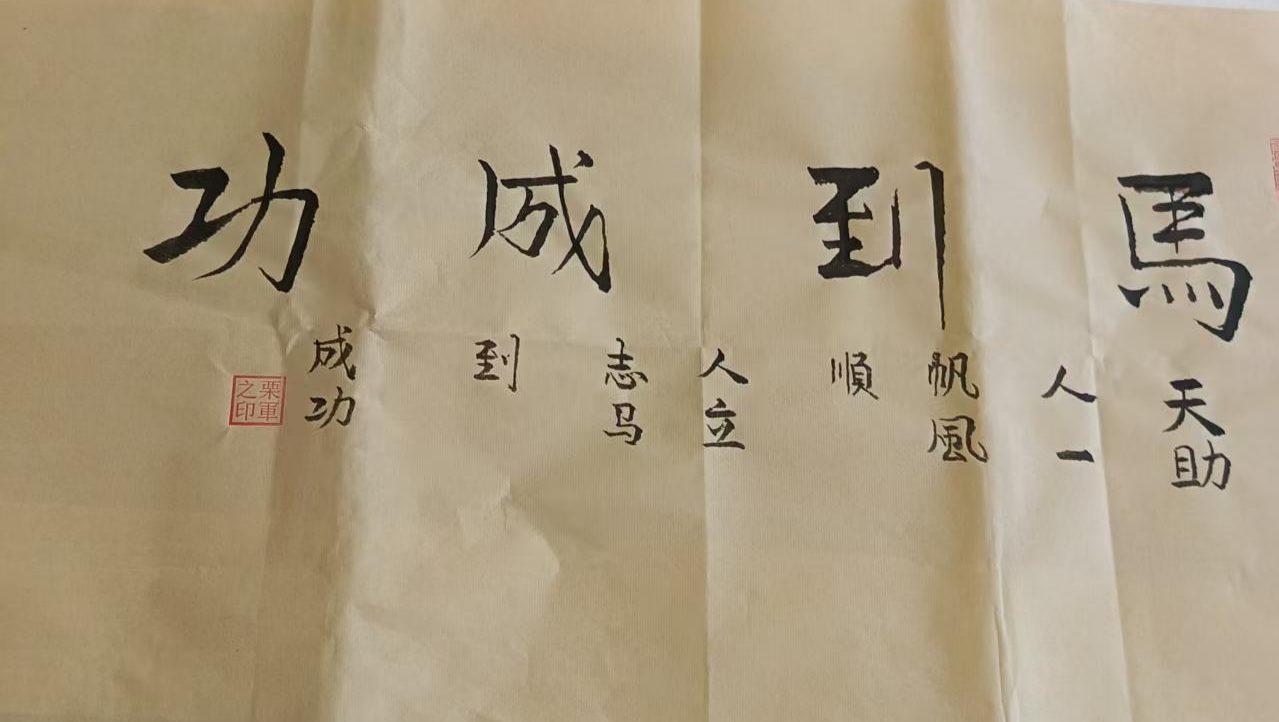 馬到成功
天助
人一
帆風
順
人立
志马
到
成功
栗軍
之印